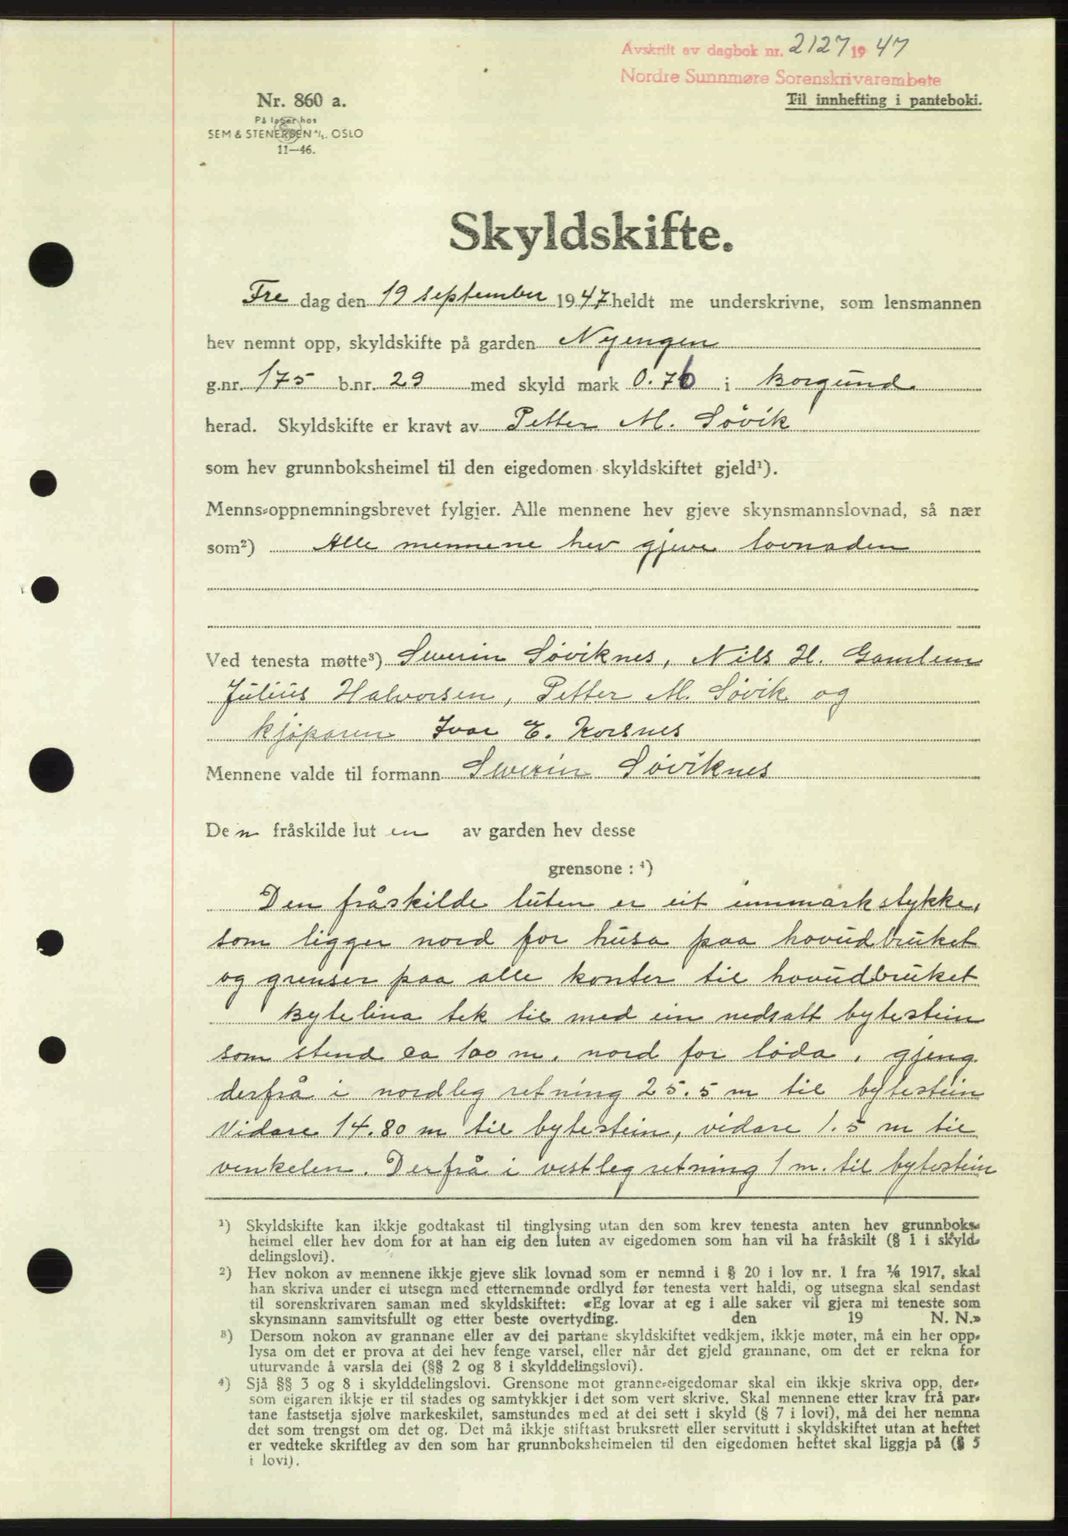 Avskrift av dagbok nr. 2127 1947
Nordre Sunnmøre Sorenskrivarembete
Til innhefting i panteboki.
Nr. 860 a.
På lager hos
SEM & STENERSEN A/S. OSLO
11—46.
Skyldskifte.
Fre dag den 19 september 1947 heldt me underskrivne, som lensmannen
hev nemnt opp, skyldskifte på garden Nyengen
g.nr. 175 b.nr. 29 med skyld mark 0.76 i Borgund
herad. Skyldskifte er kravt av Petter M. Søvik
som hev grunnboksheimel til den eigedomen skyldskiftet gjeld¹).
Menns-oppnemningsbrevet fylgjer. Alle mennene hev gjeve skynsmannslovnad, så nær
som²) Alle mennene hev gjeve lovnaden
Ved tenesta møtte³) Severin Søviknes, Nils H. Gamlem
Julius Halvorsen, Petter M. Søvik og
kjøparen Ivar E. Korsnes
Mennene valde til formann Severin Søviknes
Den fråskilde lut en av garden hev desse
grensone : ⁴)
Den fråskilde luten er eit innmarkstykke,
som ligger nord for husa paa hovudbruket
og grenser paa alle konter til hovudbruket
Bytelina tek til med ein nedsatt bytestein
som stend ca 100 m. nord for løda, gjeng
derfrå i nordleg retning 25.5 m til bytestein
Vidare 14.80 m til bytestein, vidare 1.5 m til
venkelen. Derfrå i vestleg retning 1 m. til bytestein
¹) Skyldskifte kan ikkje godtakast til tinglysing utan den som krev tenesta anten hev grunnboks-
heimel eller hev dom for at han eig den luten av eigedomen som han vil ha fråskilt (§ 1 i skyld-
delingslovi).
²) Hev nokon av mennene ikkje gjeve slik lovnad som er nemnd i § 20 i lov nr. 1 fra 1/6 1917, skal
han skriva under ei utsegn med etternemnde ordlyd før tenesta vert haldi, og utsegna skal sendast
til sorenskrivaren saman med skyldskiftet: «Eg lovar at eg i alle saker vil gjera mi teneste som
skynsmann samvitsfullt og etter beste overtyding. den 19 N. N.»
³) Dersom nokon av grannane eller av dei partane skyldskiftet vedkjem, ikkje møter, må ein her opp-
lysa om det er prova at dei hev fenge varsel, eller når det gjeld grannane, om det er rekna for
uturvande å varsla dei (§§ 2 og 8 i skylddelingslovi).
⁴) Sjå §§ 3 og 8 i skylddelingslovi. Grensone mot granne-eigedomar skal ein ikkje skriva opp, der-
som eigaren ikkje er til stades og samtykkjer i det som vert skrive. Skal mennene etter krav frå par-
tane fastsetja sjølve markeskilet, samstundes med at dei sett i skyld (§ 7 i lovi), må dei her nemna
det som trengst om det og. Det må ikkje stiftast bruksrett eller servitutt i skyldskiftet utan at heftet
er vedteke skriftleg av den som har grunnboksheimelen til den eigedomen heftet skal liggja på (§ 5
i lovi).